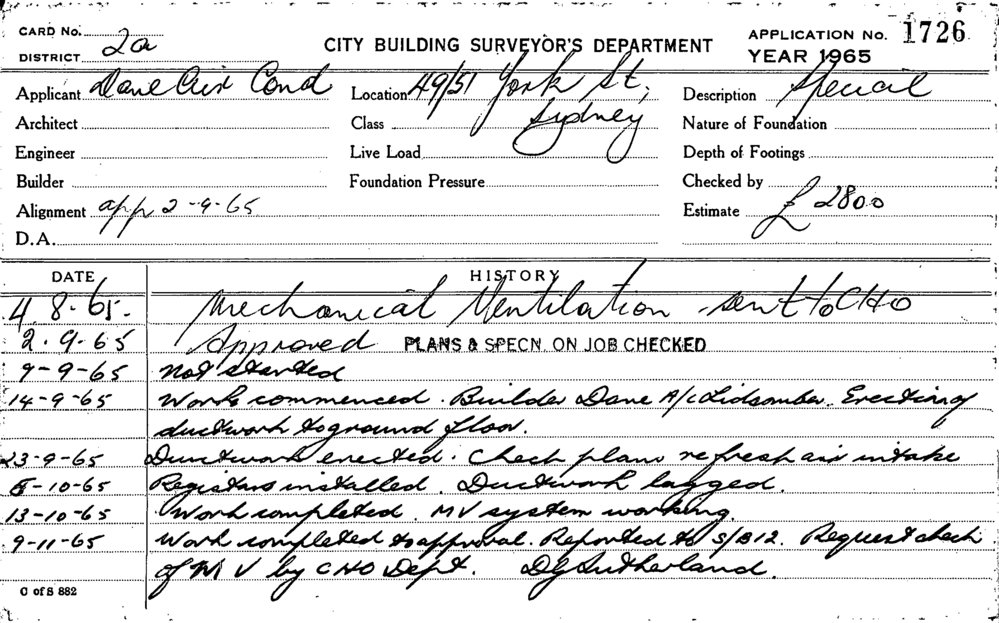 CARD No.
DISTRICT 2a
CITY BUILDING SURVEYOR'S DEPARTMENT
APPLICATION No. 1726
YEAR 1965
Applicant Dane Air Cond
Location 49/51 York St,
Sydney
Description Special
Architect
Class
Nature of Foundation
Engineer
Live Load
Depth of Footings
Builder
Foundation Pressure
Checked by
Alignment app 2-9-65
Estimate £ 2800
D.A.
DATE HISTORY
4 8-65- Mechanical Ventilation sent to CHO
2.9-65 Approved PLANS & SPECN. ON JOB CHECKED
9-9-65 Not started
14-9-65 Work commenced. Builder Dane A/c Lidcombe. Erecting
ductwork to ground floor.
23-9-65 Ductwork erected. Check plans re fresh air intake
8-10-65 Registers installed. Ductwork lagged.
13-10-65 Work completed. MV system working.
9-11-65 Work completed to approval. Reported to S/B12. Request check
of M V by CHO Dept. DG Sutherland.
C of S 882